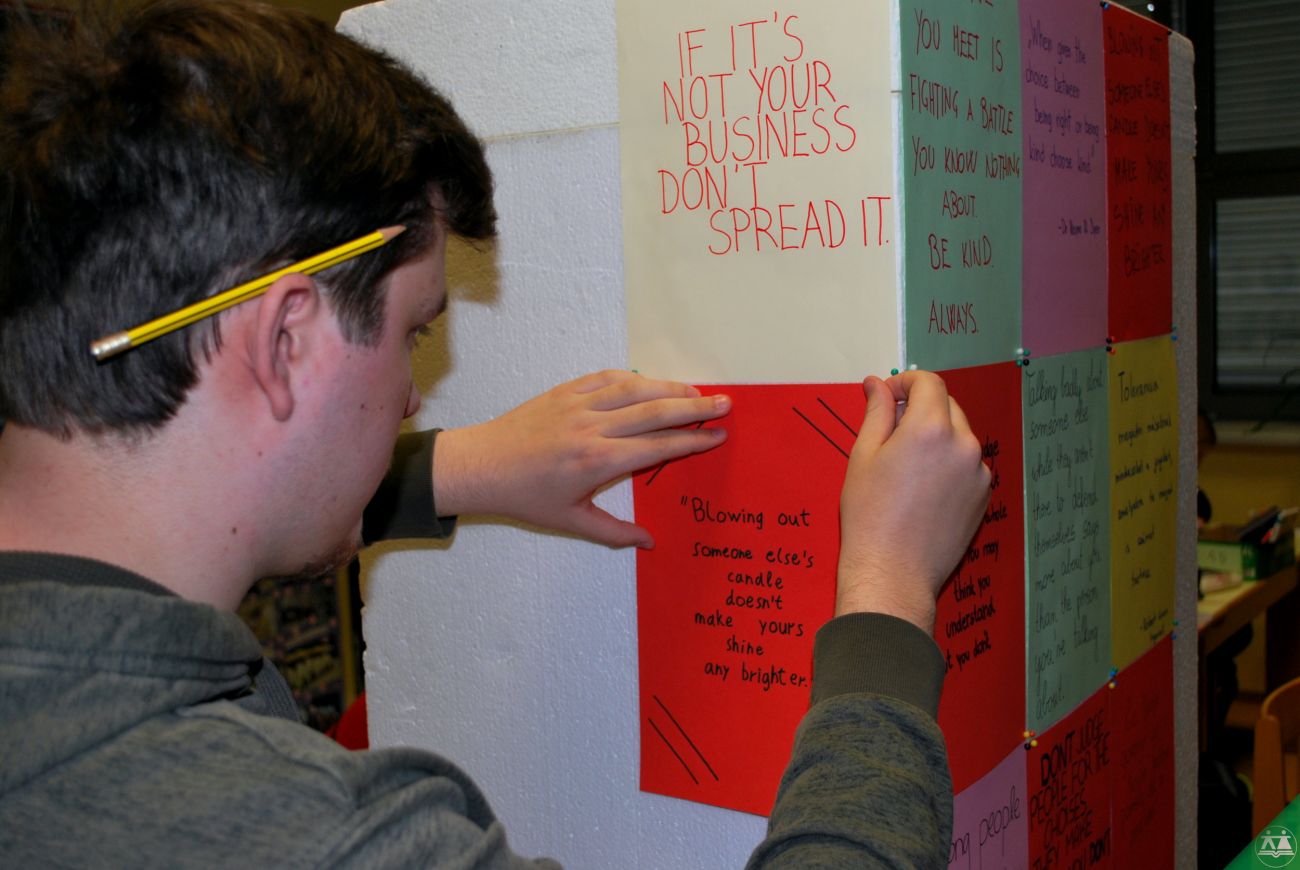 IF IT'S
NOT YOUR
BUSINESS
DON'T
SPREAD IT.
YOU MEET IS
FIGHTING A BATTLE
YOU KNOW NOTHING
ABOUT.
BE KIND.
ALWAYS.
„When given the
choice between
being right or being
kind choose kind"
- Dr Wayne W. Dyer
BLOWING OUT
SOMEONE ELSE'S
CANDLE DOESN'T
MAKE YOURS
SHINE ANY
BRIGHTER
"Blowing out
someone else's
candle
doesn't
make yours
shine
any brighter.
you may
think you
understand
you don't.
Talking badly about
someone else
while they aren't
there to defend
themselves says
more about you
than the person
you're talking
about.
people
DON'T JUDGE
PEOPLE FOR THE
CHOISES
THEY MAKE
DON'T